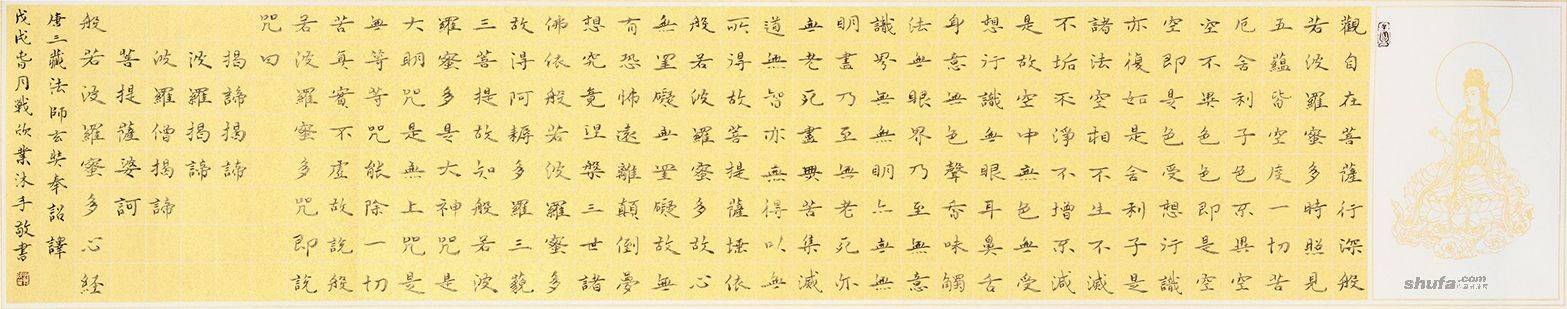 觀自在菩薩行深般
若波羅蜜多時照見
五蘊皆空度一切苦
厄舍利子色不異空
空不異色色即是空
空即是色受想行識
亦復如是舍利子是
諸法空相不生不滅
不垢不淨不增不減
是故空中無色無受
想行識無眼耳鼻舌
身意無色聲香味觸
法無眼界乃至無意
識界無無明亦無無
明盡乃至無老死亦
無老死盡無苦集滅
道無智亦無得以無
所得故菩提薩埵依
般若波羅蜜多故心
無罣礙無罣礙故無
有恐怖遠離顛倒夢
想究竟涅槃三世諸
佛依般若波羅蜜多
故得阿耨多羅三藐
三菩提故知般若波
羅蜜多是大神咒是
大明咒是無上咒是
無等等咒能除一切
苦真實不虛故說般
若波羅蜜多咒即說
咒曰
揭諦揭諦
波羅揭諦
波羅僧揭諦
菩提薩婆訶
般若波羅蜜多心経
唐三藏法師玄奘奉詔譯
戊戌月戰欣業沐手敬書
shufa.com